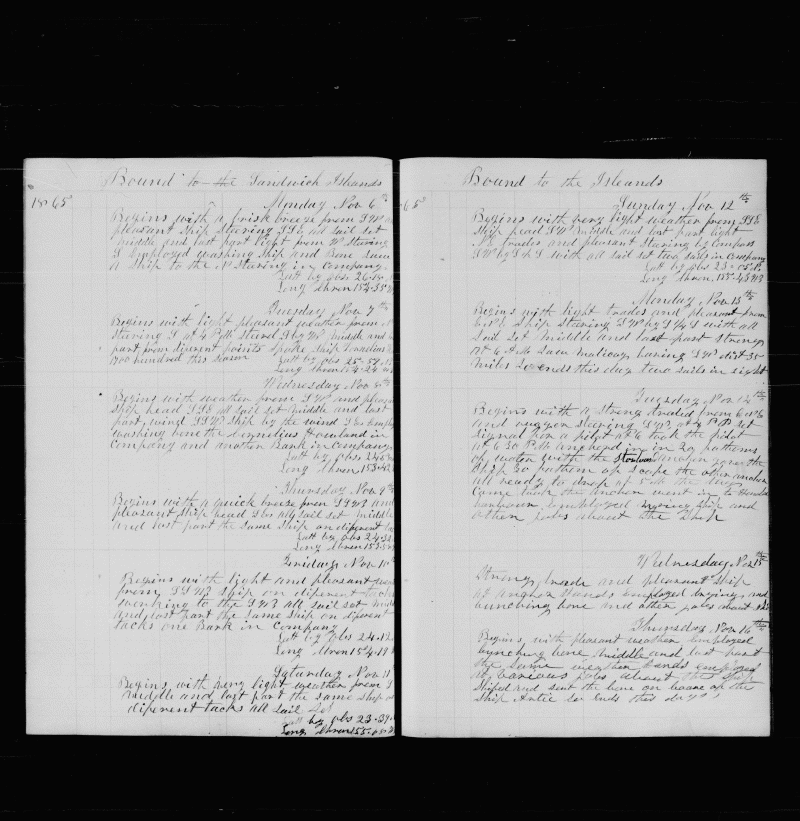 Bound to the Sandwich Islands
1865
Monday Nov 6th
Begins with a brisk breeze from SW and
pleasant Ship Steering SSE all sail set
middle and last part light from W Stearing
S Employed washing Ship and Bone Seen
a Ship to the N Stearing in Company
Latt by obs 26-
Long Chron 154-35
Tuesday Nov 7th
Begins with light pleasant weather from
Stearing S at 4 PM Steared S by W middle and
part from diferent points spoke Ship
hundred this season Latt by obs 25-
Long Chron 154-24
Wednesday Nov 8th
Begins with weather from SW and pleasant
Ship head SSE all sail set middle and last
part wind SSW Ship by the wind
washing bone the Cornelius Howland in
Company and another Bark in Company
Latt by obs 24-
Long Chron 153-42
Thursday Nov 9th
Begins with a quick breeze from SSW and
pleasant Ship head all sail set middle
and last part the same Ship on diferent
Latt by obs 24-32
Long Chron 153-
Friday Nov 10th
Begins with light and pleasant
from SSW Ship on diferent tacks
working to the SW all sail set
and last part the same Ship on diferent
tacks one Bark in Company
Latt by Obs 24-12
Long Chron 154-19
Saturday Nov 11th
Begins with very light weather from S
middle and last part the same Ship on
diferent tacks all sail Set
Latt by obs 23-39
Long Chron 155-08
Bound to the Isleands
65
Sunday Nov 12th
Begins with very light weather from SSE
Ship head SW middle and last part light
NE trades and pleasant Stearing by Compass
SW by S ½ S with all sail set two sails in Company
Latt by obs 23-05 N
Long Chron 155-43 W
Monday Nov 13th
Begins with light trades and pleasant from
Ship Stearing SW by S ½ S with all
Sail Set middle and last part Strong
at 6 AM Saw baring SW dist 30
miles So ends this day two sails in sight
Tuesday Nov 14th
Begins with a Strong trades from E
and ruggen Stearing at 4 PM Set
Signal for a pilot at 6 took the pilot
at 6 30 PM anchored in 20 pathoms
of water with the anchor gave the
Ship 30 pathom of scope the other anchor
all ready to drop at 5 AM the tug
Came took the anchor went in to
Employed drying Ship and
other jobs about the Ship
Wednesday Nov 15th
Strong trade and pleasant Ship
at anchor hands employed drying and
bunching bone and other jobs about Ship
Thursday Nov 16th
Begins with pleasant weather Employed
bunching bone middle and last part
the same weather hands employed
at various jobs about the Ship
Shiped and sent the bone on board of the
Ship so ends this day